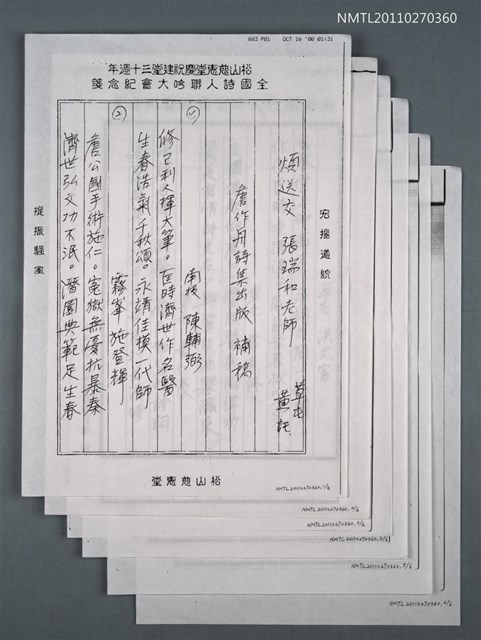 NMTL20110270360
683 P01 OCT 16 '00 01:31
松山慈惠堂慶祝建堂三十週年
全國詩人聯吟大會紀念箋
宏揚道統
煩送交 張瑞和老師
草屯
黃託
詹作舟詩集出版 補稿
(1)
南投 陳輔弼
修己利人揮大筆。匡時濟世作名醫
生春浩氣千秋頌。永靖佳模一代師
(2)
霧峯 施登輝
詹公國手術施仁。冤獄無憂抗暴秦
濟世弘文功不泯。潛園典範足生春
提振騷風
松山慈惠堂
NMTL20110270360, 1/6
NMTL20110270360, 2/6
NMTL20110270360, 3/6
NMTL20110270360, 4/6
NMTL20110270360, 5/6
NMTL20110270360, 6/6